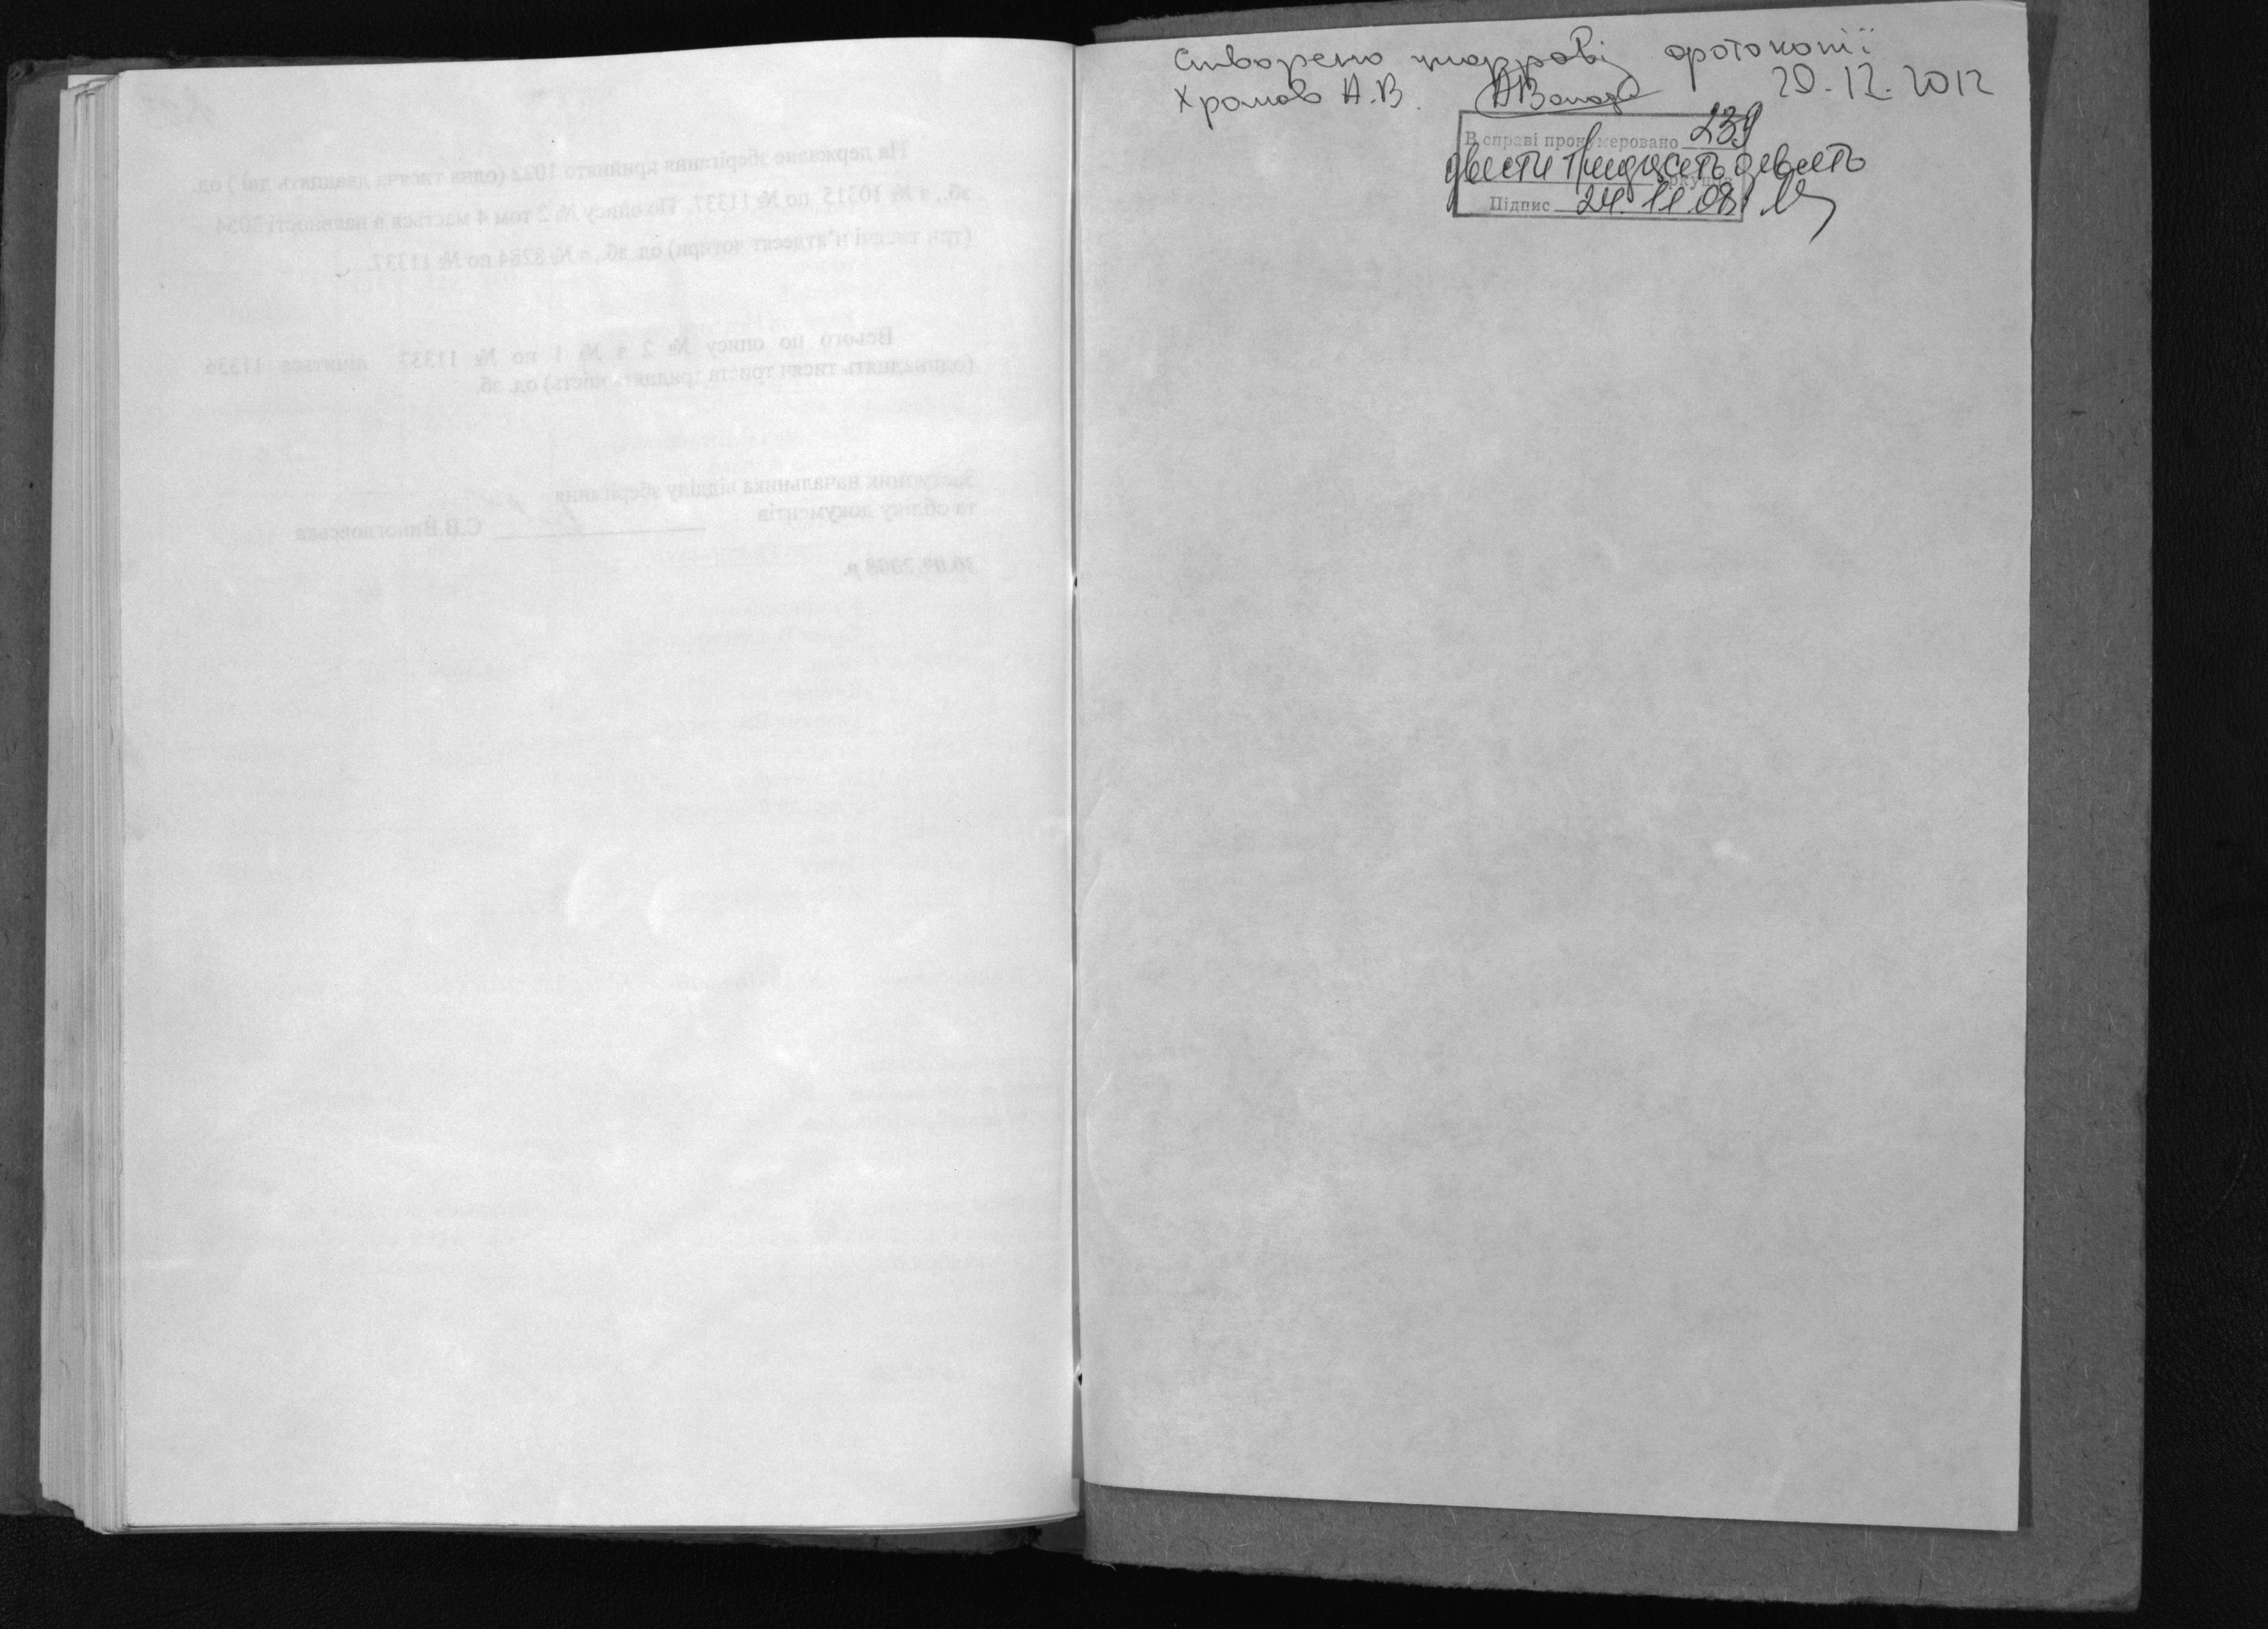 На державне зберігання прийнято 1022 (одна тисяча двадцять дві) од.
зб., з № 10315 по № 11337. По опису № 2 том 4 мається в наявності 3054
(три тисячі п'ятдесят чотири) од. зб., з № 8284 по № 11337.
Всього по опису № 2 з № 1 по № 11337 лічиться 11336
(одинадцять тисяч триста тридцять шість) од. зб.
Заступник начальника відділу зберігання
та обліку документів С.В.
30.09.2008 р.
Створено цифрові фотокопії
Хромов А.В. 20.12.2012
В справі пронумеровано 239
двести тридцать девять аркушів
Підпис 24.11.08